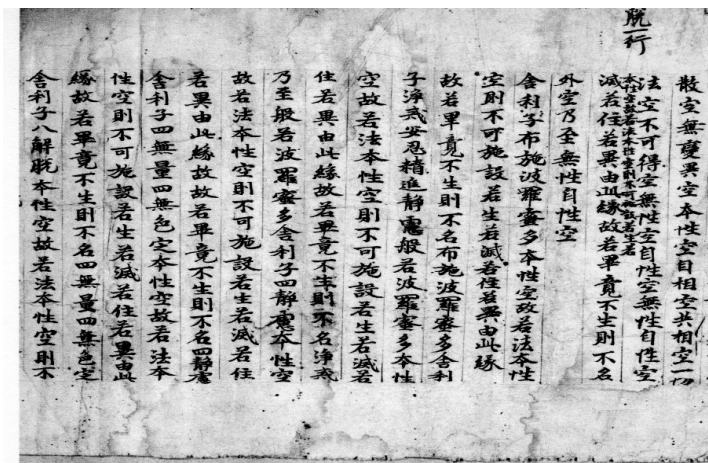 脱一行
散空無變異空本性空自相空共相空一切
法空不可得空無性空自性空無性自性空
本性空故若法本性空則不可施設若生若
滅若住若異由此緣故若畢竟不生則不名
外空乃至無性自性空
舍利子布施波羅蜜多本性空故若法本性
空則不可施設若生若滅若住若異由此緣
故若畢竟不生則不名布施波羅蜜多舍利
子淨戒安忍精進靜慮般若波羅蜜多本性
空故若法本性空則不可施設若生若滅若
住若異由此緣故若畢竟不生則不名淨戒
乃至般若波羅蜜多舍利子四靜慮本性空
故若法本性空則不可施設若生若滅若住
若異由此緣故故若畢竟不生則不名四靜慮
舍利子四無量四無色定本性空故若法本
性空則不可施設若生若滅若住若異由此
緣故若畢竟不生則不名四無量四無色定
舍利子八解脫本性空故若法本性空則不